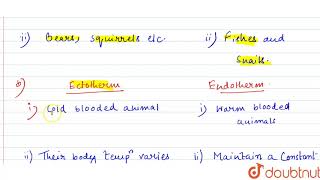 ii) Bears, Squirrels etc. ii) Fishes and
Snails.
b) Ectotherm Endotherm
i) Cold blooded animal i) Warm blooded
animals
ii) Their body tempⁿ varies ii) Maintain a Constant
doubtnut